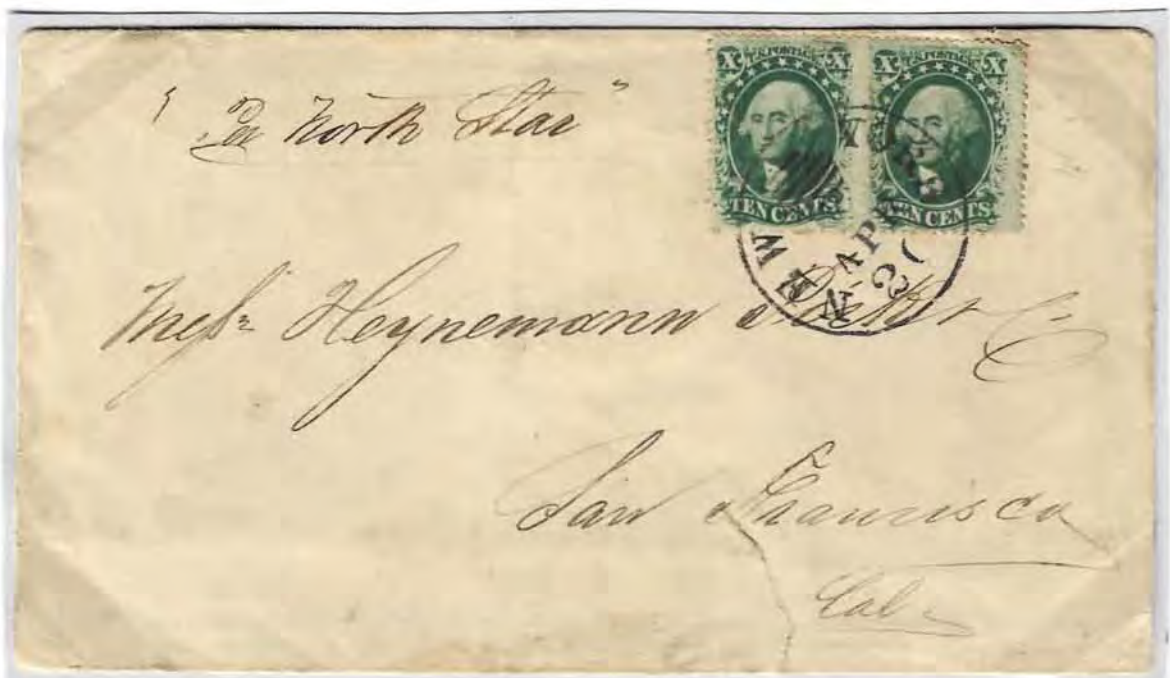 "Per North Star"
X U.S. POSTAGE X
TEN CENTS
X U.S. POSTAGE X
TEN CENTS
NEW YORK
APR
20
Messrs Heynemann & Co
San Francisco
Cal